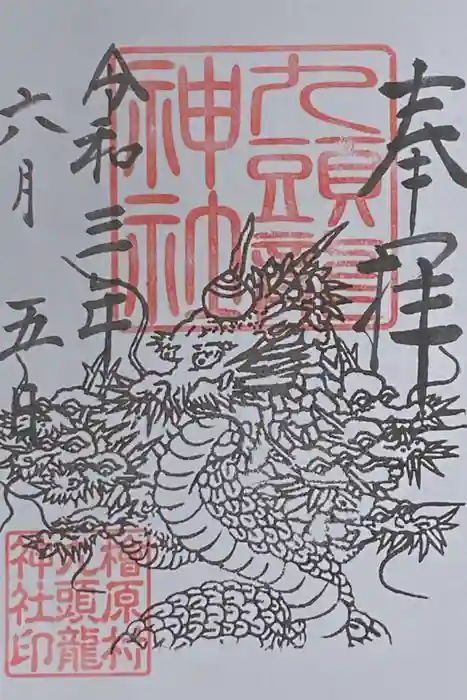 奉拝
九頭龍
神社
令和三年
六月
五日
檜原村
九頭龍
神社印